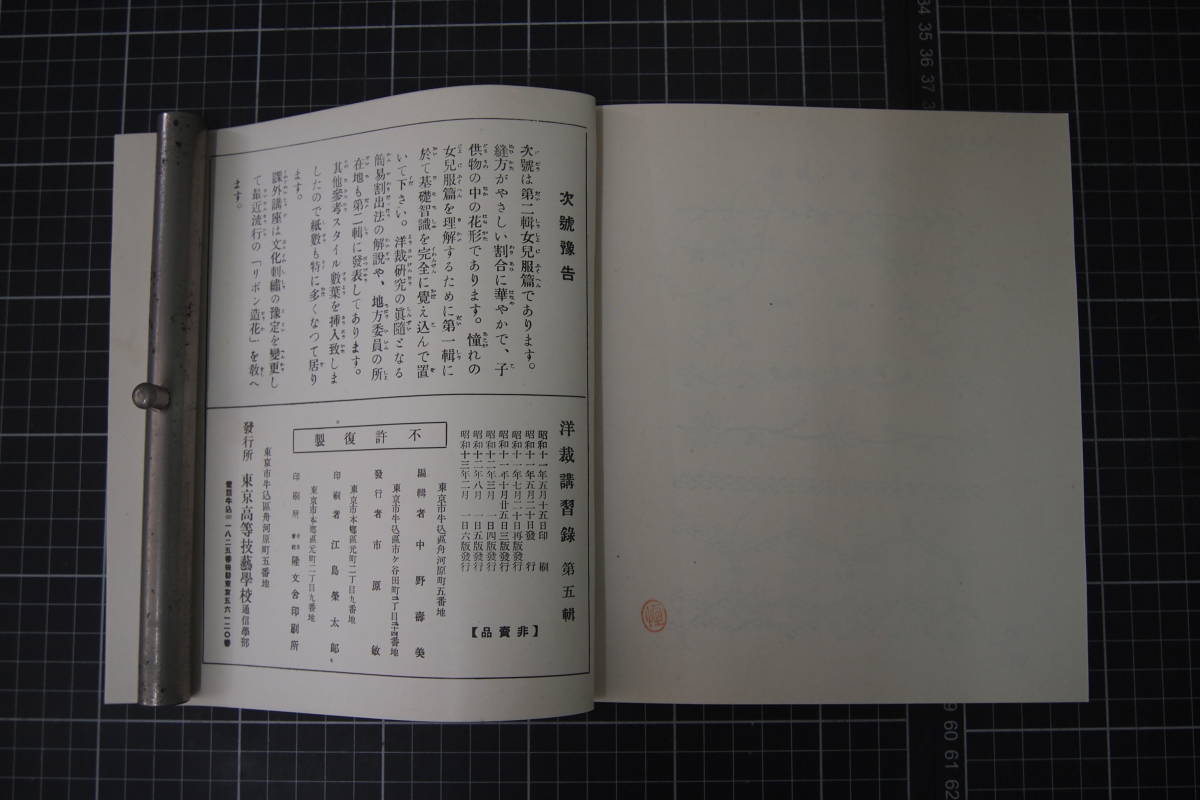 次號豫告
次號は第二輯女兒服篇であります。
縫方がやさしい割合に華やかで、子
供物の中の花形であります。憧れの
女兒服篇を理解するために第一輯に
於て基礎智識を完全に覺え込んで置
いて下さい。洋裁研究の眞隨となる
簡易割出法の解說や、地方委員の所
在地も第二輯に發表してあります。
其他參考スタイル數葉を挿入致しま
したので紙數も特に多くなつて居り
ます。
課外講座は文化刺繡の豫定を變更し
て最近流行の「リボン造花」を敎へ
ます。
洋裁講習錄 第五輯
昭和十一年五月十五日印 刷
昭和十一年五月二十日發 行
昭和十一年七月二十日再版發行
昭和十一年十月廿五日三版發行
昭和十二年三月 一日四版發行
昭和十二年八月 一日五版發行
昭和十三年二月 一日六版發行
【非賣品】
東京市牛込區舟河原町五番地
編輯者 中野壽美
發行者 市原敏
東京市本鄕區元町二丁目九番地
印刷者 江島榮太郞
東京市本鄕區元町二丁目九番地
印刷所 隆文舍印刷所
不許復製
東京市牛込區舟河原町五番地
發行所 東京高等技藝學校通信學部
34
35
36
37
59
60
61
62